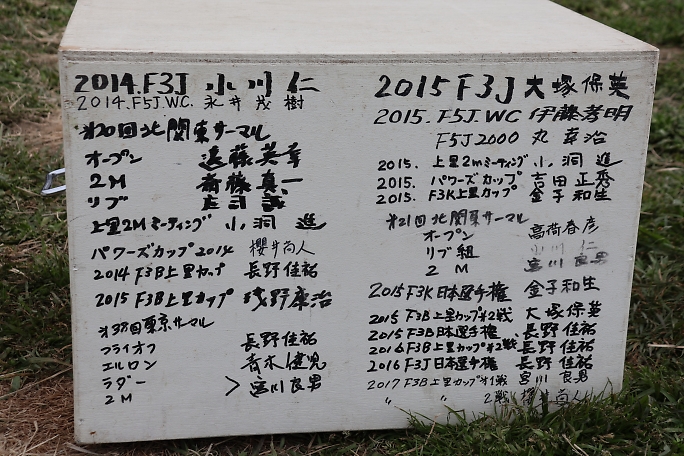 2014.F3J 小川 仁
2014.F5J.WC. 永井茂樹
第20回北関東サーマル
オープン 遠藤英幸
2M 斎藤真一
リブ 庄司誠
上里2Mミーティング 小洞 進
パワーズカップ2014 櫻井尚人
2014 F3B上里カップ 長野佳祐
2015 F3B上里カップ 浅野康治
東京サーマル
フライオフ 長野佳祐
エルロン 青木健児
ラダー > 宮川良男
2M
2015 F3J 大塚保英
2015. F5J.WC 伊藤孝明
F5J2000 丸 幸治
2015. 上里2mミーティング 小洞 進
2015. パワーズカップ 吉田正秀
2015. F3Kエ里カップ 金子和生
第21回北関東サーマル
オープン 高荷春彦
リブ組 小川 仁
2 M 宮川良男
2015 F3K日本選手権 金子和生
2015 F3B上里カップ#2戦 大塚保英
2015 F3B日本選手権 長野佳祐
2016 F3B上里カップ#2戦 長野佳祐
2016 F3J日本選手権 長野佳祐
2017 F3B上里カップオ1戦 宮川良男
〃 〃 2戦 櫻井尚人